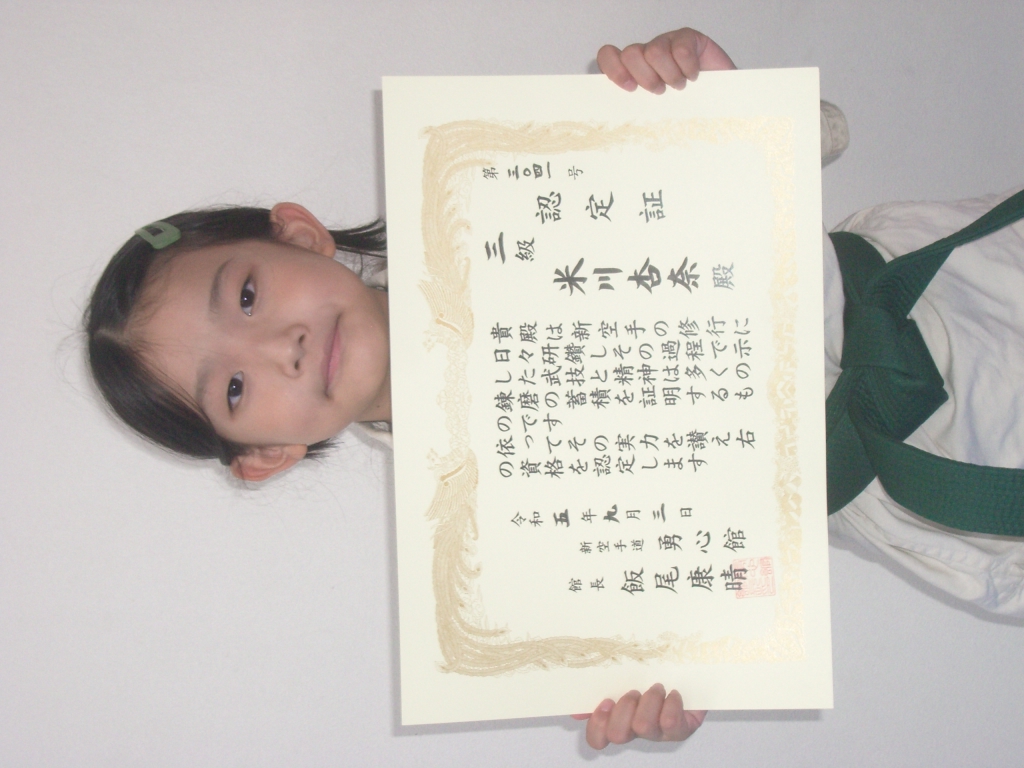 第三〇四一号
認定証
三級
米川杏奈殿
貴殿は新空手の修行に
日々研鑽しその過程で示
した武技と精神は多くの
錬磨の蓄積を証明するも
のです
依ってその実力を讃え右
の資格を認定します
令和五年九月三日
新空手道 勇心館
館長 飯尾康晴